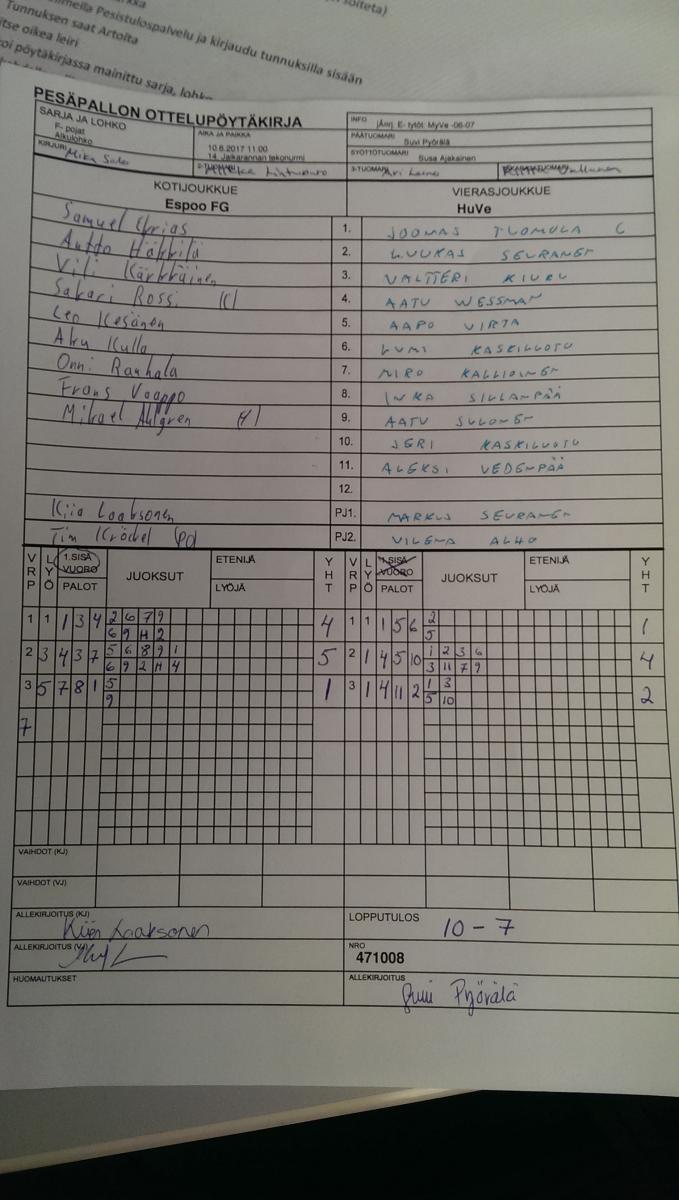 Tunnuksen saat Artoita
Pesistulospalvelu ja kirjaudu tunnuksilla sisään
oikea leiri
pöytäkirjassa mainittu sarja,
PESÄPALLON OTTELUPÖYTÄKIRJA
SARJA JA LOHKO
F- pojat
Alkulohko
AIKA JA PAIKKA
10.6.2017 11:00
14. Jalkarannan tekonurmi
INFO
E- tytöt: MyVe -06-07
PÄÄTUOMARI
Suvi Pyörälä
SYÖTTÖTUOMARI
Susa Ajakainen
KIRJURI Mika Salo
2-TUOMARI
3-TUOMARI Ari Laine
KOTIJOUKKUE
Espoo FG
VIERASJOUKKUE
HuVe
Samuel 1. JOONAS TUOMULA C
Antto Häkkilä 2. LUUKAS SEURANEN
Vili Kärkkäinen 3. VALTTERI KIURU
Sakari Rossi 4. AATU WESSMAN
Leo Kesänen 5. AAPO VIRTA
Aku Kulla 6. LUMI KASKILUOTO
Onni Rauhala 7. NIRO KALLIOINEN
Frans Vaappo 8. INKA SILLANPÄÄ
Mikael Ahlgren 9. AATU SULONEN
10. JERI KASKILUOTO
11. ALEKSI VEDENPÄÄ
12.
Kiia Laaksonen PJ1. MARKUS SEURANEN
Tim PJ2. VILENA ALHO
VRP LYÖ 1.SISÄ VUORO PALOT JUOKSUT ETENIJÄ LYÖJÄ YHT VRP LYÖ 1.SISÄ VUORO PALOT JUOKSUT ETENIJÄ LYÖJÄ YHT
1 1 1 3 4 2 6 7 9 4 1 1 1 5 6 2 1
6 9 H 2 5
2 3 4 3 7 5 6 8 9 1 5 2 1 4 5 10 1 2 3 6 4
6 9 2 H 4 3 11 7 9
3 5 7 8 1 5 1 3 1 4 11 2 1 3 2
9 5 10
7
VAIHDOT (KJ)
VAIHDOT (VJ)
ALLEKIRJOITUS (KJ) Kiia Laaksonen
LOPPUTULOS 10 - 7
ALLEKIRJOITUS (VJ)
NRO
471008
HUOMAUTUKSET
ALLEKIRJOITUS
Suvi Pyörälä